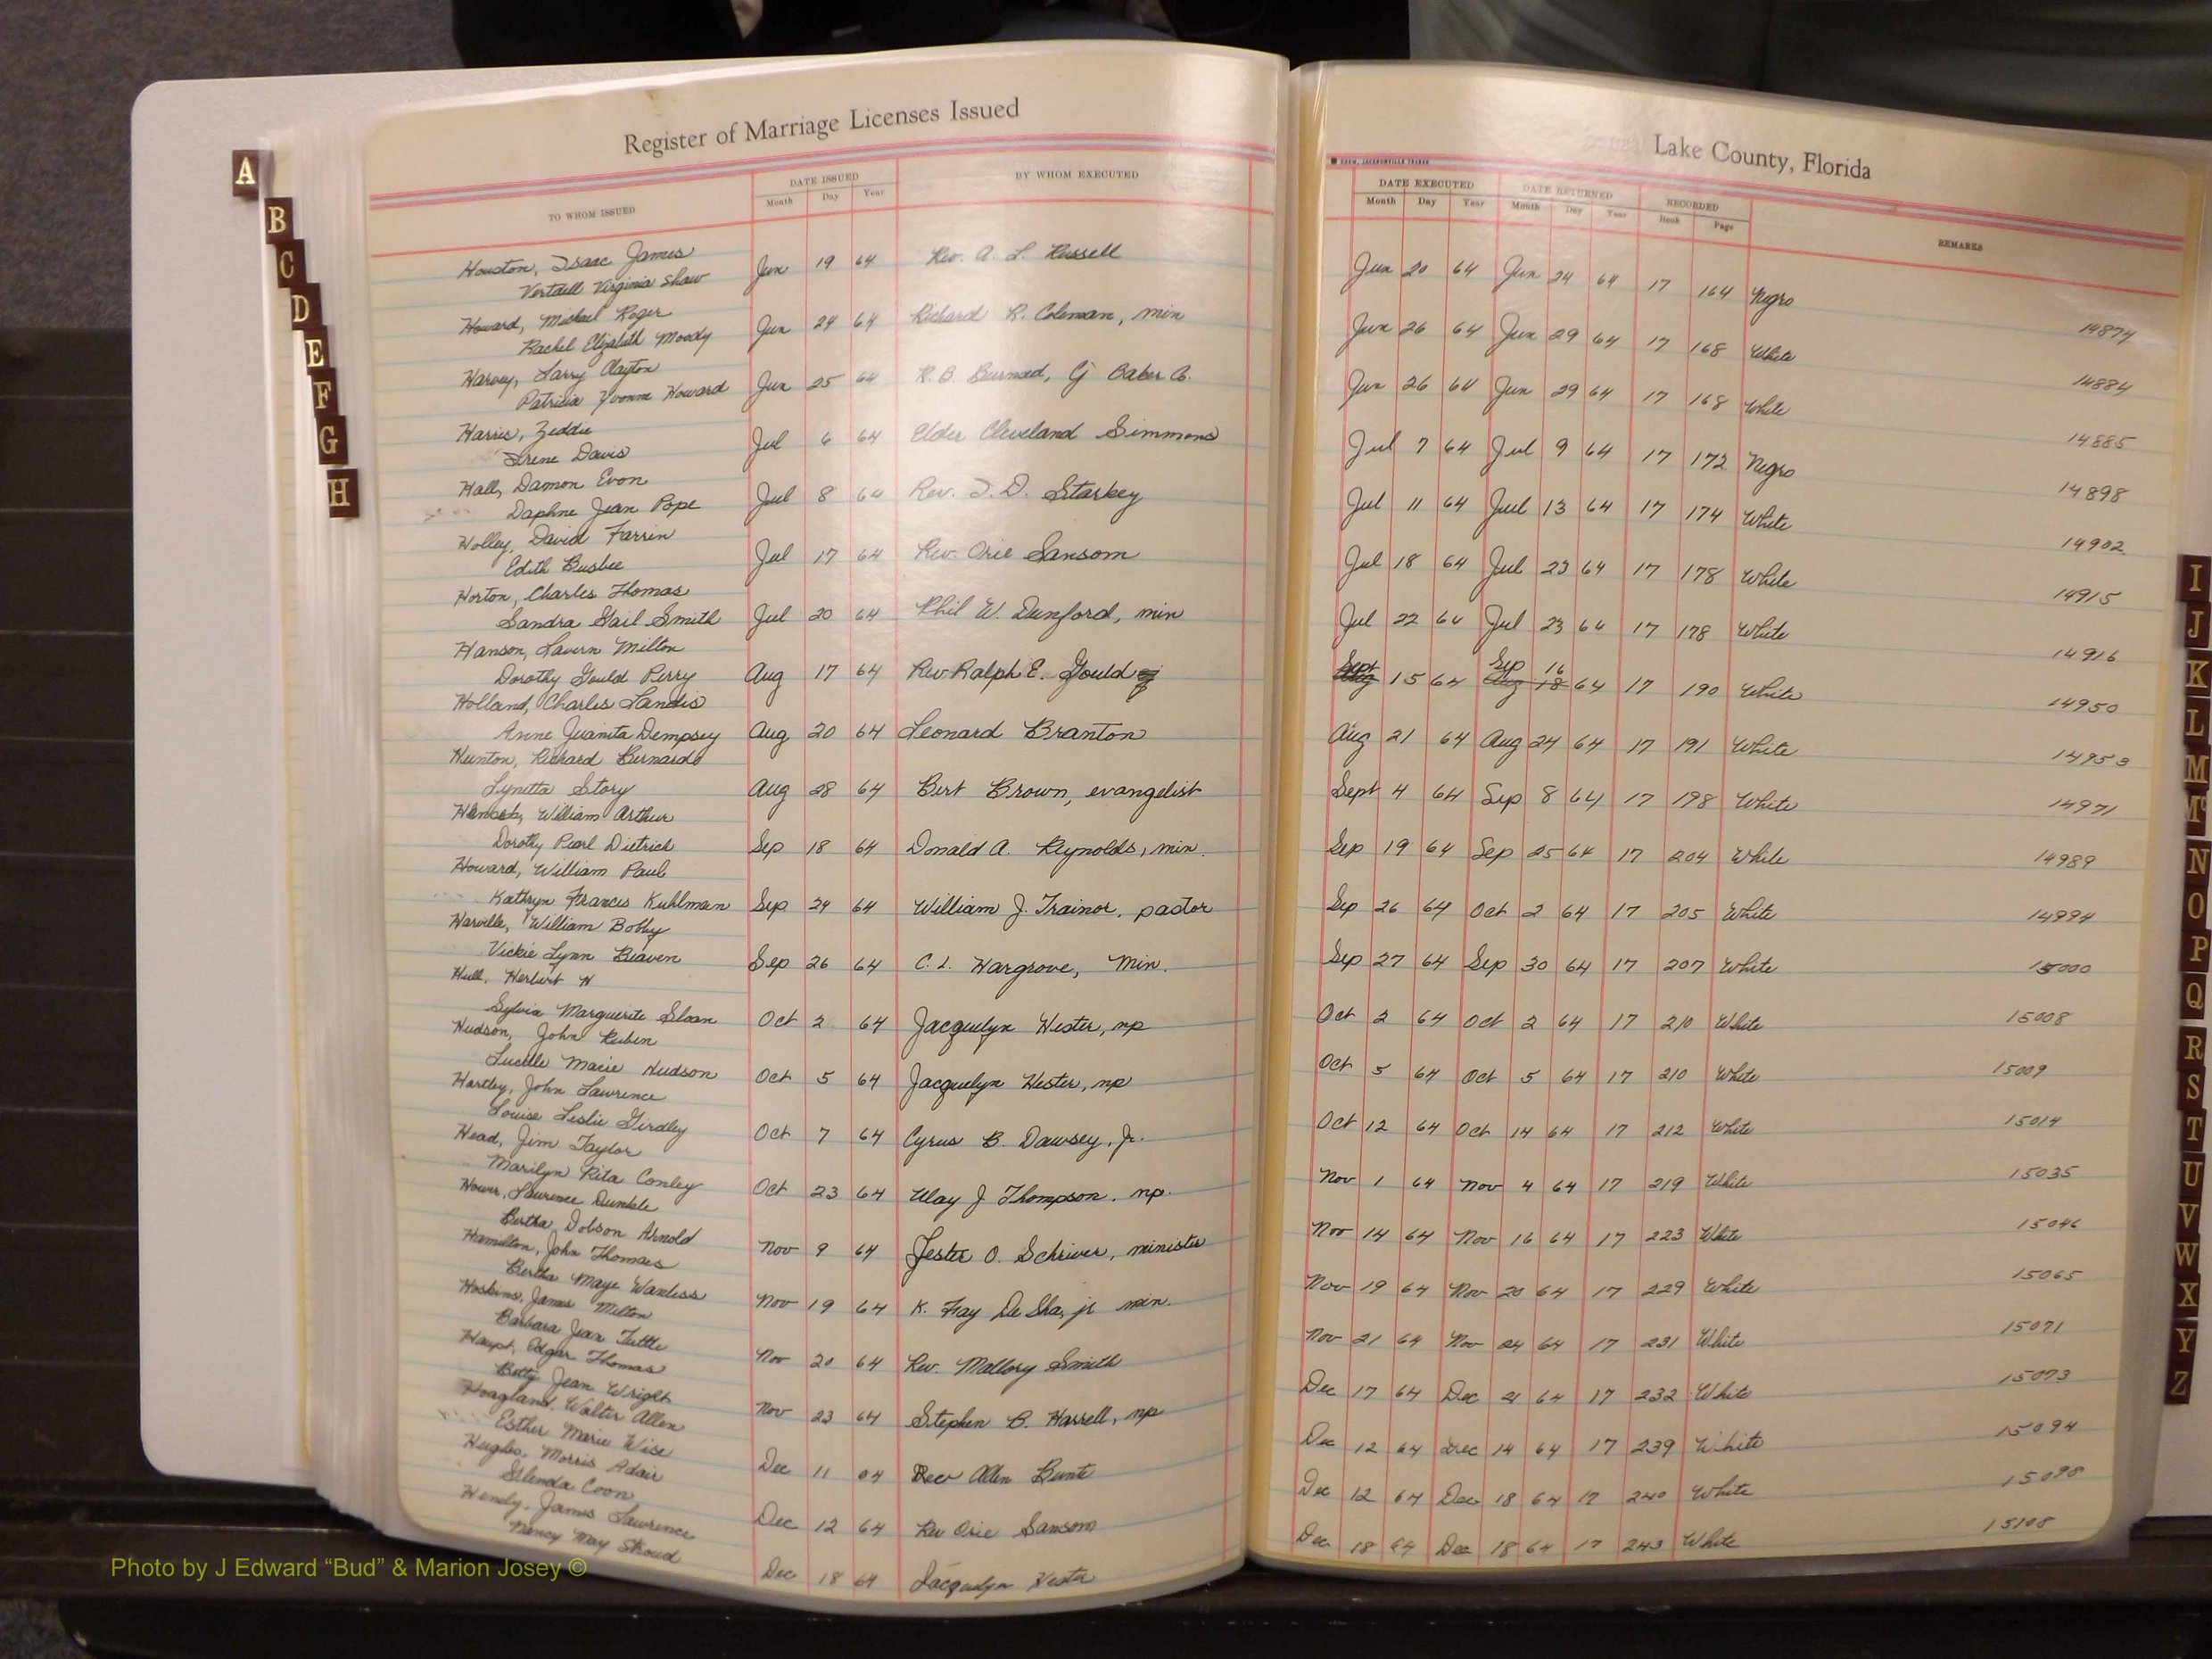 Register of Marriage Licenses Issued
Lake County, Florida
TO WHOM ISSUED
DATE ISSUED
Month Day Year
BY WHOM EXECUTED
DATE EXECUTED
Month Day Year
DATE RETURNED
Month Day Year
RECORDED
Book Page
REMARKS
Houston, Isaac James
Vertaell Virginia Shaw
Jun 19 64 Rev. A. L. Russell Jun 20 64 Jun 24 64 17 164 Negro 14874
Howard, Michael Roger
Rachel Elizabeth Moody
Jun 24 64 Richard R. Coleman, min Jun 26 64 Jun 29 64 17 168 White 14884
Harvey, Larry Clayton
Patricia Yvonne Howard
Jun 25 64 R. B. Burnsed, CJ Baker Co. Jun 26 64 Jun 29 64 17 168 White 14885
Harris, Zeddie
Irene Davis
Jul 6 64 Elder Cleveland Simmons Jul 7 64 Jul 9 64 17 172 Negro 14898
Hall, Damon Evon
Daphne Jean Pope
Jul 8 64 Rev. T. D. Starkey Jul 11 64 Jul 13 64 17 174 White 14902
Holley, David Farrin
Edith Busbee
Jul 17 64 Rev. Orie Sansom Jul 18 64 Jul 23 64 17 178 White 14915
Horton, Charles Thomas
Sandra Gail Smith
Jul 20 64 Phil W. Dunford, min Jul 22 64 Jul 23 64 17 178 White 14916
Hanson, Lavern Milton
Dorothy Gould Perry
Aug 17 64 Rev Ralph E. Gould Sept 15 64 Sep 16 64 17 190 White 14950
Holland, Charles Landis
Anne Juanita Dempsey
Aug 20 64 Leonard Branton Aug 21 64 Aug 24 64 17 191 White 14953
Hunton, Richard Burnard
Lynetta Story
Aug 28 64 Bert Brown, evangelist Sept 4 64 Sep 8 64 17 198 White 14971
William Arthur
Dorothy Pearl Dietrich
Sep 18 64 Donald A. Reynolds, min. Sep 19 64 Sep 25 64 17 204 White 14989
Howard, William Paul
Kathryn Francis Kuhlman
Sep 24 64 William J. Trainor, pastor Sep 26 64 Oct 2 64 17 205 White 14994
Harville, William Bobby
Vickie Lynn Beaven
Sep 26 64 C. L. Hargrove, Min. Sep 27 64 Sep 30 64 17 207 White 15000
Hull, Herbert H
Sylvia Marguerite Sloan
Oct 2 64 Jacquelyn Hester, np Oct 2 64 Oct 2 64 17 210 White 15008
Hudson, John Ruben
Lucille Marie Hudson
Oct 5 64 Jacquelyn Hester, np Oct 5 64 Oct 5 64 17 210 White 15009
Hartley, John Lawrence
Louise Leslie Girdley
Oct 7 64 Cyrus B. Dawsey, Jr. Oct 12 64 Oct 14 64 17 212 White 15014
Head, Jim Taylor
Marilyn Rita Conley
Oct 23 64 Ulay J Thompson, np. Nov 1 64 Nov 4 64 17 219 White 15035
Hower, Lawrence Dunkle
Bertha Dobson Arnold
Nov 9 64 Lester O. Schriver, minister Nov 14 64 Nov 16 64 17 223 White 15046
Hamilton, John Thomas
Bertha Maye Wanless
Nov 19 64 K. Fray De Sha, jr min. Nov 19 64 Nov 20 64 17 229 White 15065
Hoskins, James Milton
Barbara Jean Tuttle
Nov 20 64 Rev. Mallory Smith Nov 21 64 Nov 24 64 17 231 White 15071
Haupt, Edgar Thomas
Betty Jean Wright
Nov 23 64 Stephen B. Harrell, np Dec 17 64 Dec 21 64 17 232 White 15073
Hoagland, Walter Allen
Esther Marie Wise
Dec 11 64 Rev Allen Bunts Dec 12 64 Dec 14 64 17 239 White 15094
Hughes, Morris Adair
Glenda Coon
Dec 12 64 Rev Orie Sansom Dec 12 64 Dec 18 64 17 240 White 15098
Hendy, James Lawrence
Nancy May Stroud
Dec 18 64 Jacquelyn Hester Dec 18 64 Dec 18 64 17 243 White 15108
A
B
C
D
E
F
G
H
I
J
K
L
M
Mc
N
O
P
Q
R
S
T
U
V
W
X
Y
Z
Photo by J Edward “Bud” & Marion Josey ©